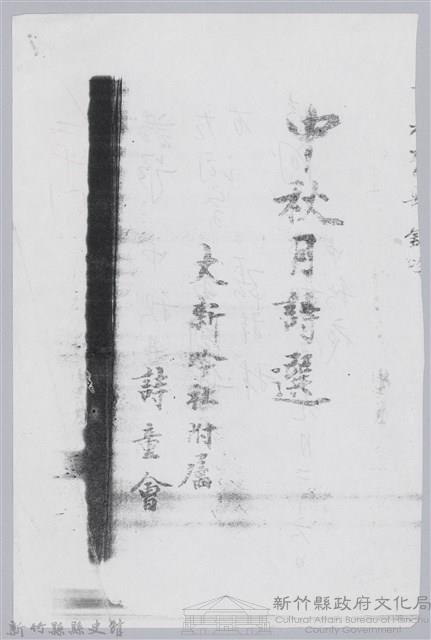 中秋月詩選
大新吟社附屬
詩童會
新竹縣縣史館
新竹縣政府文化局
Cultural Affairs Bureau of Hsinchu
County Government